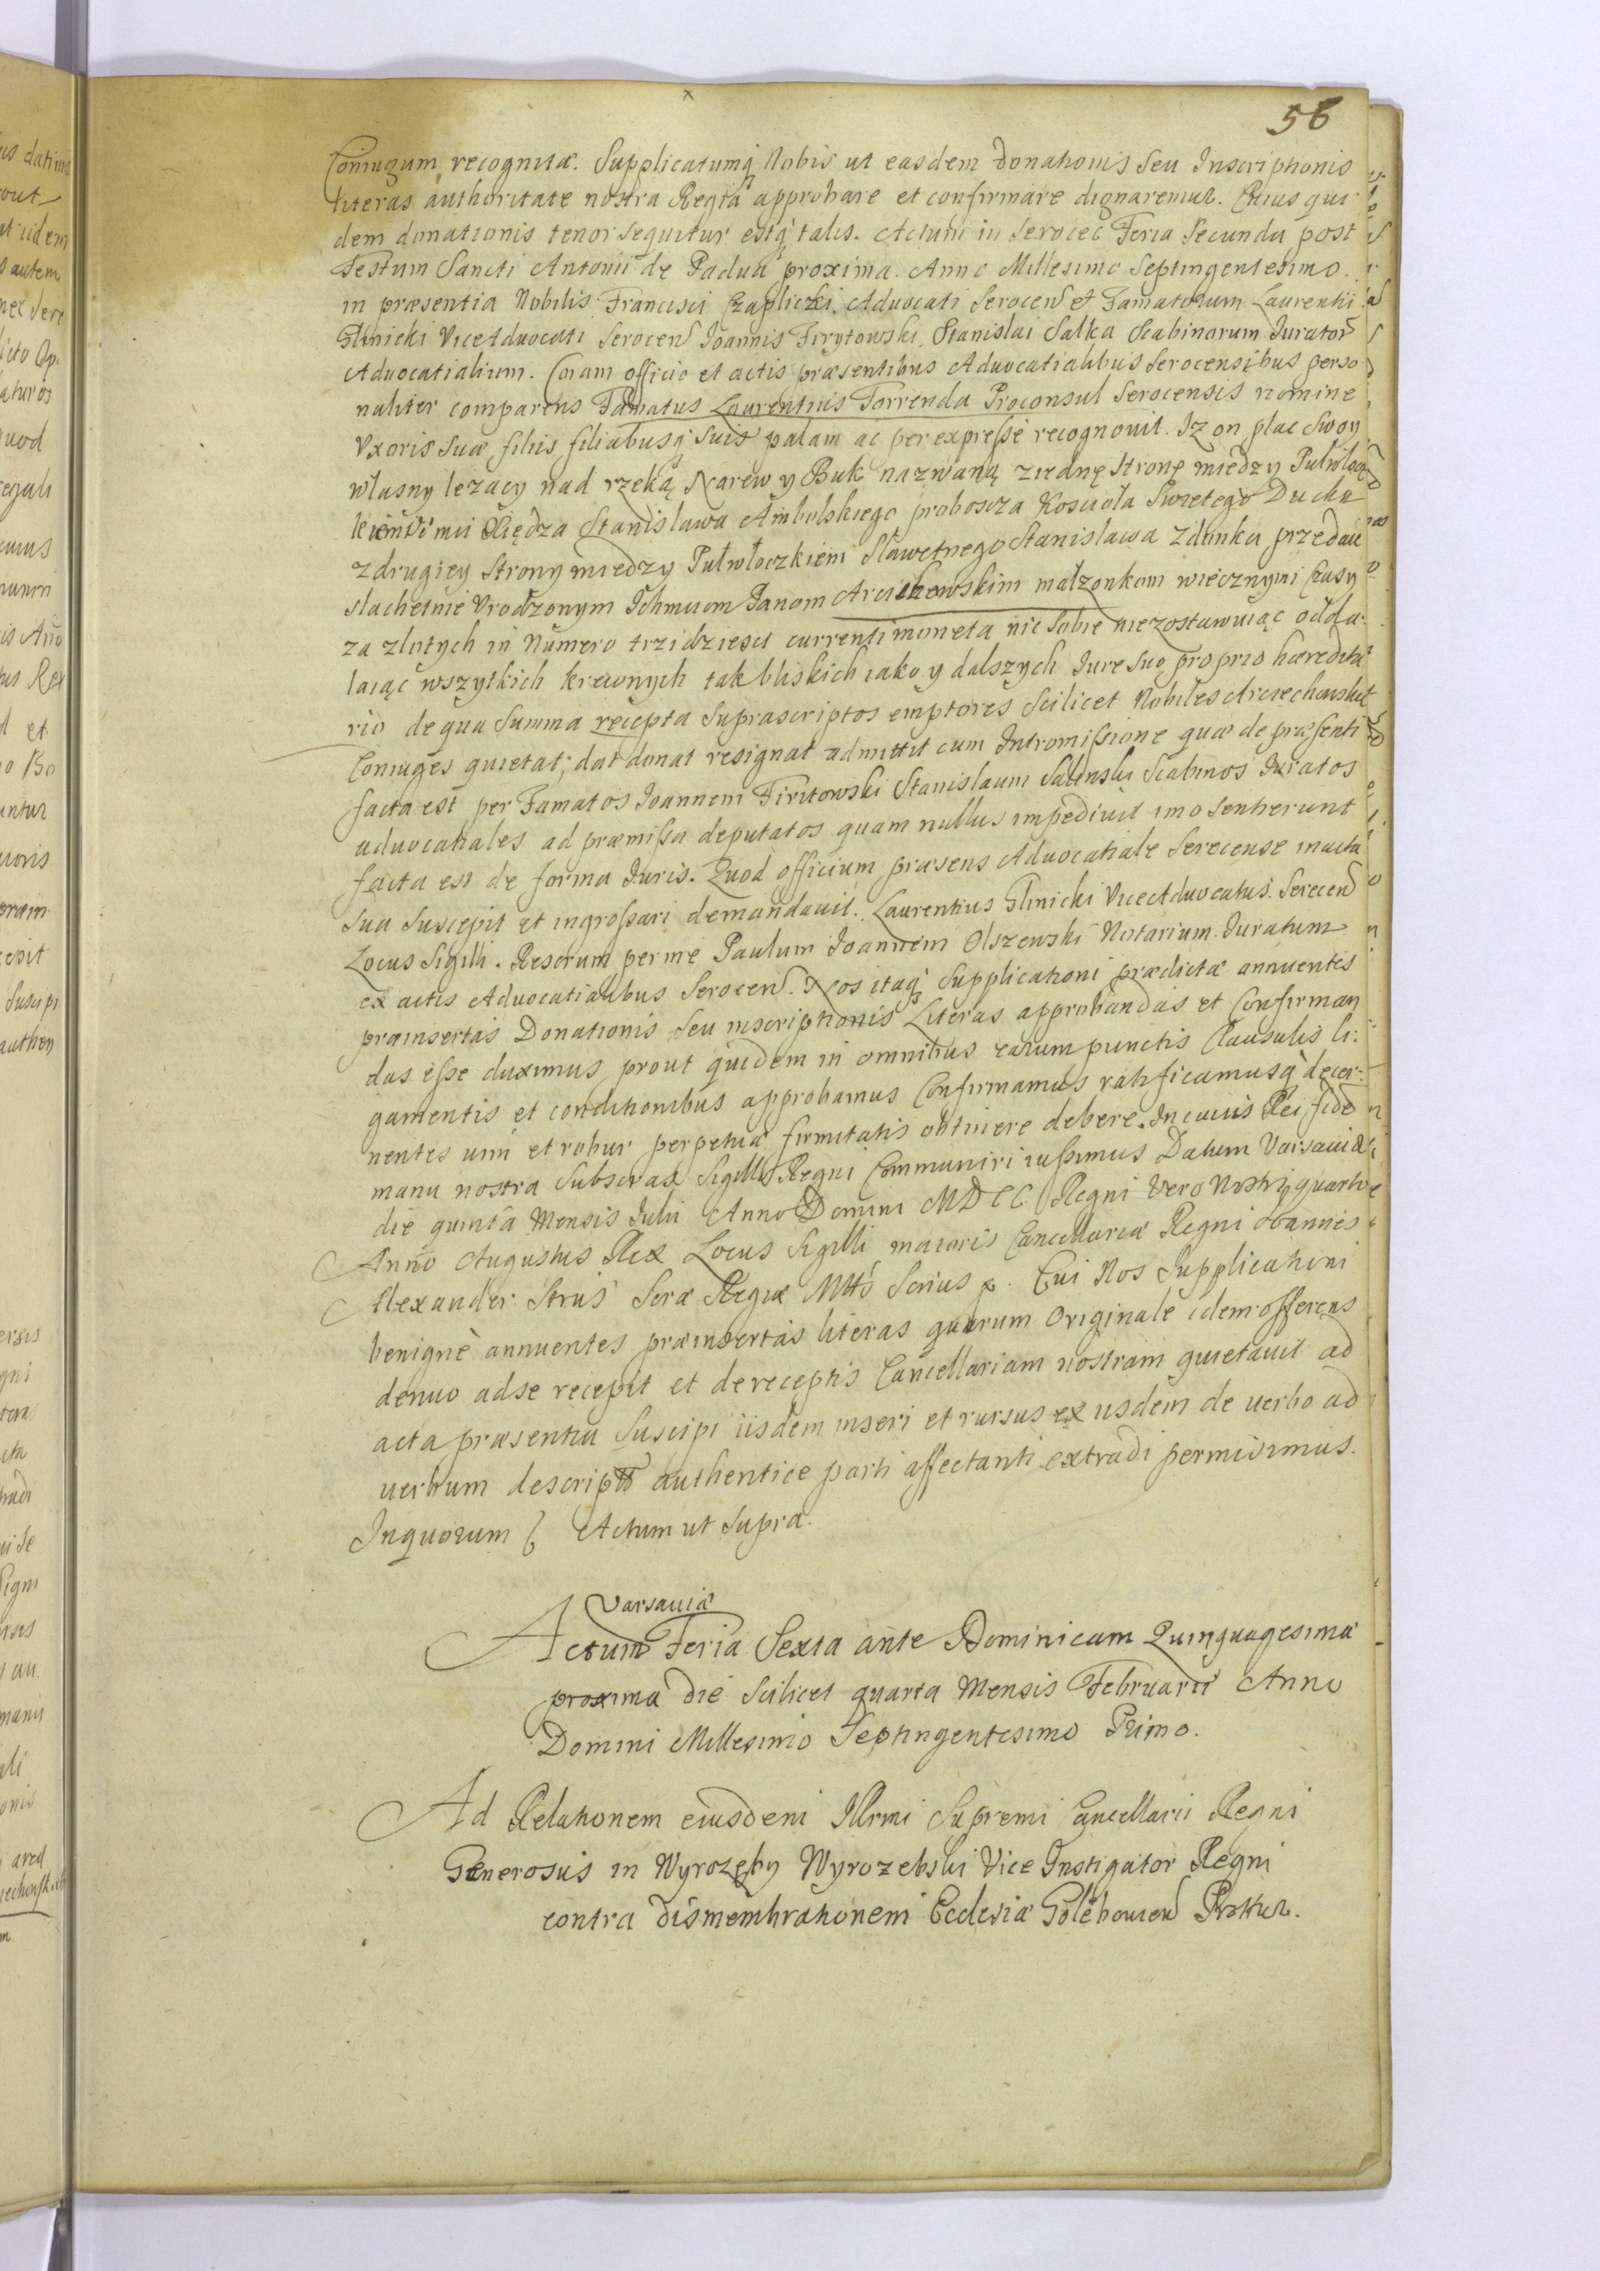 56
Coniugum recognitæ. Supplicatumq́ Nobis ut easdem donationis seu Inscriptionis
literas authoritate nostra Regia approbare et confirmare dignaremur. Cuius qui
dem donationis tenor sequitur estq́ talis. Actum in Serocec Feria Secunda post
Festum Sancti Antonii de Padua proxima. Anno Millesimo Septingentesimo.
in præsentia Nobilis Francisci Czapliczki Advocati Serocen et Famatorum Laurentii
Glinicki ViceAdvocati Serocen Joannis Firytowski, Stanislai Salka Scabinorum Iurator
Advocatialium. Coram officio et actis præsentibus Advocatialibus Serocensibus perso
naliter comparens Famatus Laurentius Torrenda Proconsul Serocensis nomine
Uxoris suæ filiis filiabusq́ suis palam ac per expresse recognovit. Iz on plac swoy
własny lezący nad rzeką Narew y Buk nazwaną ziednę stronę miedzy
Xiędza Stanisława Ambolskiego proboscza Koscioła Swietego Ducha
z drugiey strony miedzy Pułwłoczkiem Sławetnego Stanisława Zdunka przedau
slachetnie Urodzonym Ichmciom Panom Arciechowskim małzonkom wiecznymi Czasy
za zlotych in Numero trzidziesci currenti moneta nic sobie niezostawuiąc odda
laiąc wszytkich krewnych tak bliskich iako y dalszych Iure suo proprio hæredita
rio de qua summa recepta suprascriptos emptores scilicet Nobiles Arciechowskich
Coniuges quietat, dat donat resignat admittit cum Intromissione quæ de præsenti
facta est per Famatos Joannem Firitowski Stanislaum Salenski Scabinos Iuratos
advocatiales ad præmissa deputatos quam nullus impedivit imo senserunt
facta est de forma Iuris. Quod officium præsens Advocatiale Serecense in acta
sua suscepit et ingrossari demandavit. Laurentius Glinicki ViceAdvocatus Serecen
Locus Sigilli. Rescrum per me Paulum Joannem Olszewski Notarium Iuratum
ex actis Advocatialibus Serocen. Nos itaq́ supplicationi prædictæ annuentes
præinsertas Donationis seu inscriptionis Literas approbandas et Confirman
das esse duximus prout quidem in omnibus earum punctis Clausulis li
gamentis et conditionibus approbamus Confirmamus ratificamusq́ decer
nentes uim et robur perpetuæ firmitatis obtinere debere. In cuius Rei fide
manu nostra subscrax Sigillo Regni Communiri iussimus Datum Varsaviæ
die quinta Mensis Julii Anno Domini MDCC Regni vero Nostri quarto
Anno Augustus Rex Locus Sigilli maioris Cancellariæ Regni Joannes
Alexander Strus Scræ Regiæ Mttis Scrius p. Cui Nos Supplicationi
benignè annuentes præinsertas literas quarum Originale idem offerens
denuo ad se recepit et de receptis Cancellariam nostram quietavit ad
acta præsentia suscipi iisdem inseri et rursus ex iisdem de uerbo ad
uerbum descriptas authentice parti affectanti extradi permisimus.
In quorum Actum ut supra.
Varsaviæ
Actum Feria Sexta ante Dominicam Quinquagesimæ
proxima die scilicet quarta Mensis Februarii Anno
Domini Millesimo Septingentesimo Primo.
Ad Relationem eiusdem Illrmi Supremi Cancellarii Regni
Generosus in Wyrozęby Wyrozebski Vice Instigator Regni
contra dismembrationem Ecclesiæ Golębowien Prottur.